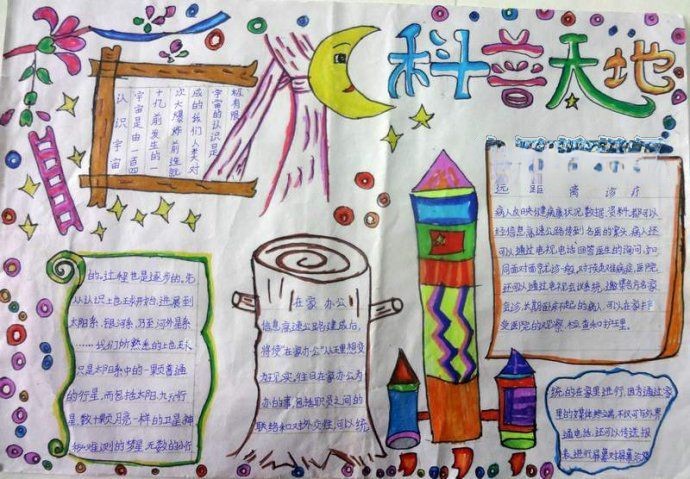 科普天地
认识宇宙
宇宙是由一百四
十亿前发生的一
次大爆炸前造就
成的我们人类对
宇宙的认识是
极有限
远距离诊疗
病人的健康状况,数据,资料,都可以
经信息高速公路传到名医的案头,病人还
可以通过电视,电话回答医生的询问,如
同面对面就诊一般,对于疑难病症,医院
还可以通过电视会议系统,邀集各方名家
会诊,长期卧床不起的病人,可以在家接
受医院的观察,检查和护理。
的。过程也是逐步的。先
从认识上地球开始,进展到
太阳系,银河系,乃至河外星系
……我们所熟系的上地球
只是太阳系中的一颗普通
的行星,而包括太阳,九大行
星,数十颗月亮一样的卫星,神
秘难测的彗星,无数的小行
在家办公
信息高速公路建成后,
将使"在家办公"从理想变
为现实,往日在办公
办的事,包括职员之间的
联络和对外交往,可以统
统的在家里进行,因为通过家
里的多媒体终端,不仅可与外界
通电话,还可以传送报
表,进行屏幕对屏幕